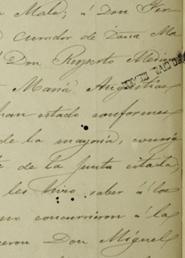 Mala; á Don Fer
Curador de Dona Ma
Don Ruperto
Maria Angustias
han estado conformes
de la mayoria,
de la Junta citada
les hizo saber á los
no concurrieron á la
eron Don Miguel